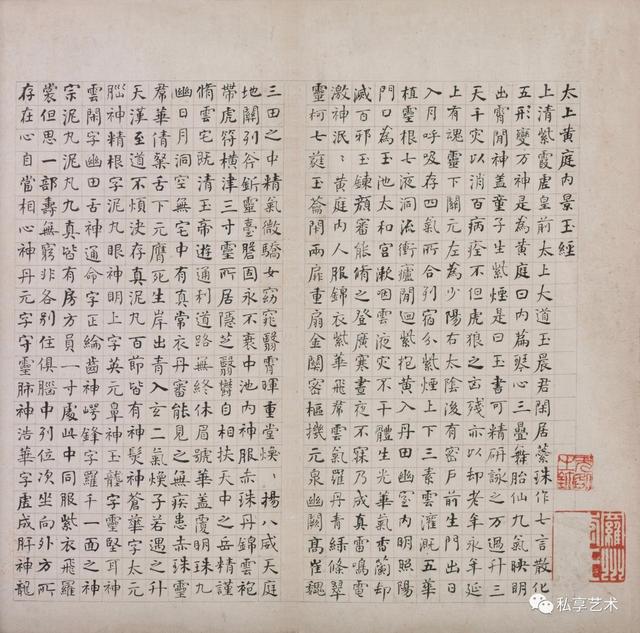 太上黄庭内景玉經
上清紫霞虛皇前太上大道玉晨君閑居蕊珠作七言散化
五形變万神是為黄庭曰内篇琴心三疊舞胎仙九氣映明
出霄間神盖童子生紫煙是曰玉書可精研詠之万過升三
天千灾以消百病痊不但虎狼之凶殘亦以却老年永年延
上有魂靈下關元左為少陽右太陰後有密戶前生門出日
入月呼吸存四氣所合列宿分紫煙上下三素雲灌溉五華
植靈根七液洞流衝廬間迴紫抱黄入丹田幽室内明照陽
門口為玉池太和宮漱咽靈液灾不干體生光華氣香蘭却
滅百邪玉鍊顏審能脩之登廣寒晝夜不寐乃成真雷鳴電
激神泯〻黄庭内人服錦衣紫華飛帬雲氣羅丹青緑條翠
靈柯七蕤玉籥閇兩扉重扇金關密樞機元泉幽闕高崔巍
三田之中精氣微嬌女窈窕翳霄暉重堂煥〻揚八威天庭
地關列斧斤靈臺盤固永不衰中池内神服赤珠丹錦雲袍
帶虎符橫津三寸靈所居隱芝翳鬱自相扶天中之岳精謹
脩雲宅既清玉帝遊通利道路無終休眉號華盖覆明珠九
幽日月洞空無宅中有真常衣丹審能見之無疾患赤珠靈
帬華蒨粲舌下元膺死生岸出青入玄二氣煥子若遇之升
天漢至道不煩決存真泥丸百節皆有神髮神蒼華字太元
腦神精根字泥丸眼神明上字英元鼻神玉壟字靈堅耳神
雲閑字幽田舌神通命字正綸齒神崿鋒字羅千一面之神
宗泥丸泥丸九真皆有房方員一寸處此中同服紫衣飛羅
裳但思一部壽無窮非各別住俱腦中列位次坐向外方所
存在心自當相心神丹元字守靈肺神浩華字虚成肝神龍
私享艺术